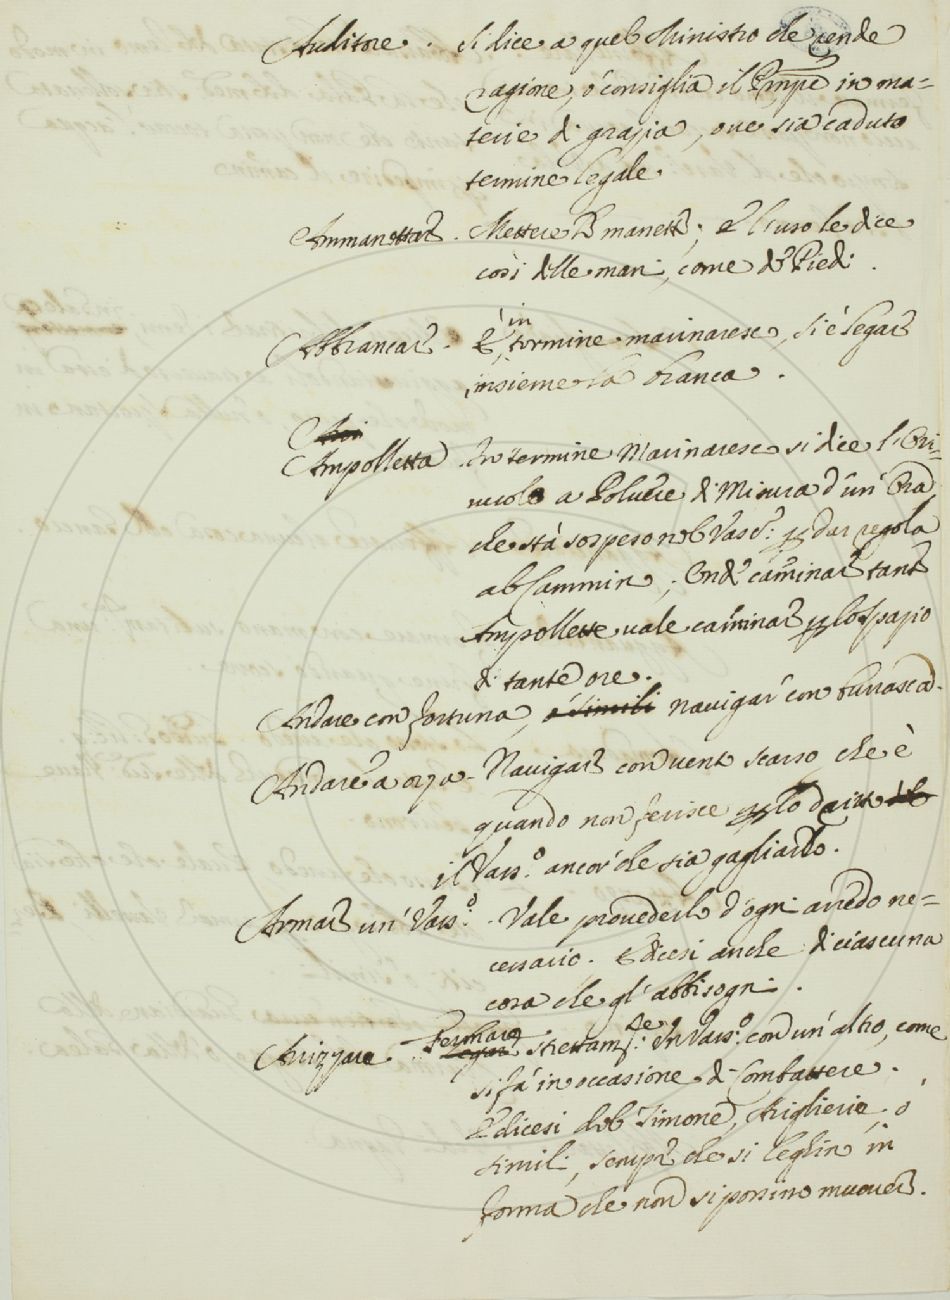 Auditore. si dice a quel Ministro che rende
ragione, ó consiglia il Prnpe in ma=
terie di grazia, ove sia caduto
termine legale.
Ammanettare. Mettere le manette; e l'uso le dice
così delle mani, come de Piedi.
in
Abbrancare. È termine marinaresco, si é legare
insieme la branca.
Ampolletta In termine Marinaresco si dice l'Ori=
uolo a Polvere di Misura d'un' Ora
che stà sospeso nel Vascº: per dar regola
al Cammino; Onde caminare tante
Ampollette vale caminare per lo spazio
di tante ore.
Andare con fortuna, o simili navigar' con burrasca.
Andare a orza. Navigare con vento scarso che è
quando non ferisce per lo dritto
il Vasº. ancor' che sia gagliardo.
Armare un' Vasº. Vale provederlo d'ogni arredo ne=
cessario. E dicesi anche di ciascuna
cosa che gl' abbisogni.
Fermare te
Arizzare. Legare strettamᵗᵉ: Un Vasº. con un' altro, come
si fá in occasione di Combattere.
E dicesi del Timone, Artiglierie, ó
simili, sempre che si leghino in
forma che non si possino muovere.